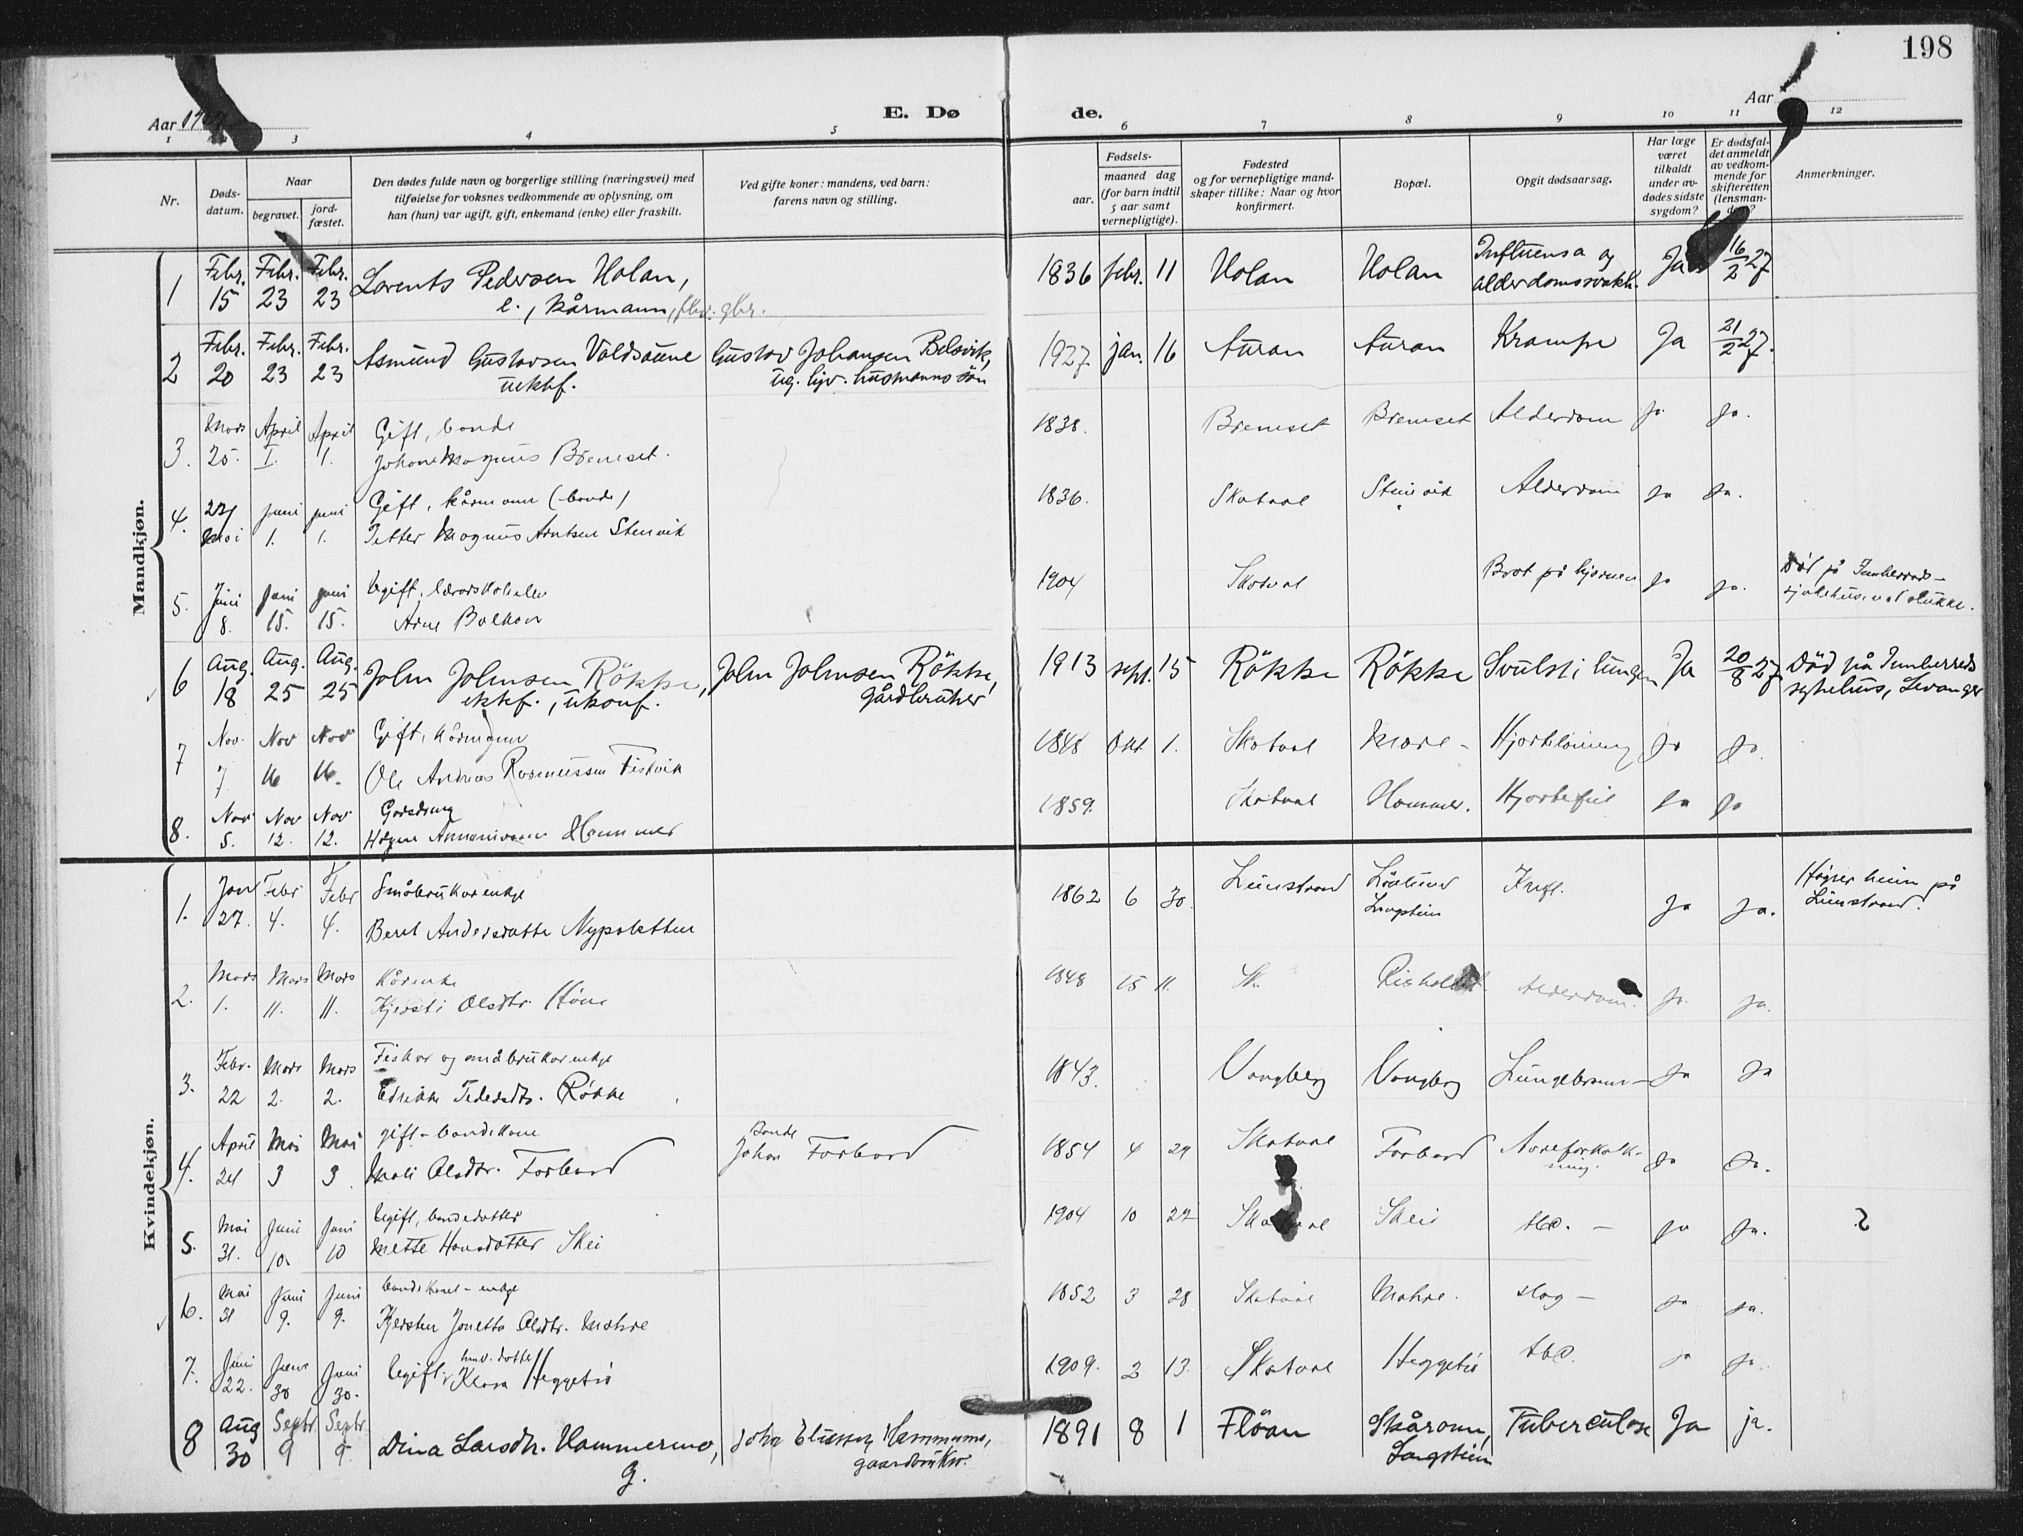 198
Aar
Aar
E. Dø
de.
1 3 4 5 6 7 8 9 10 11 12
Nr.
Døds-
datum.
Naar
begravet.
jord-
fæstet.
Den dødes fulde navn og borgerlige stilling (næringsvei) med
tilføielse for voksnes vedkommende av oplysning, om
han (hun) var ugift, gift, enkemand (enke) eller fraskilt.
Ved gifte koner: mandens, ved barn:
farens navn og stilling.
aar.
Fødsels-
maaned dag
(for barn indtil
5 aar samt
vernepligtige).
Fødested
og for vernepligtige mand-
skaper tillike: Naar og hvor
konfirmert.
Bopæl.
Opgit dødsaarsag.
Har læge
været
tilkaldt
under av-
dødes sidste
sygdom?
Er dødsfal-
det anmeldt
av vedkom-
mende for
skifteretten
(lensman-
Anmerkninger.
Mandkjøn.
1 Febr. 15 Febr. 23 Febr. 23 Lorents Pedersen Holan,
e., kårmann, 
1836 febr. 11 Holan Holan Influensa og
alderdomssvakh. Ja 16/2 27
2 Febr. 20 Febr. 23 Febr. 23 Asmund Gustavsen Voldsaune
uektf.
Gustav Johansen Belsvik,
ug. hjv. husmanns søn
1927 jan. 16 Auran Auran Krampe Ja 21/2 27.
3. Mars 25. April 1. April 1. Gift, bonde
Johan Magnus Bremset.
1838. Bremset Bremset Alderdom ja ja.
4. 27 Mai juni 1. juni 1. Gift, kårmann (bonde)
Petter Magnus Arntsen Stenvik
1836. Skatval Stenvik Alderdom ja ja.
5. Juni 8. juni 15. juni 15. Ugift, lærarskoleelev
Arne
1904 Skatval Brot på hjernen ja ja. Död på Innherreds-
sjukehus
6 Aug. 18 Aug. 25 Aug. 25 John Johnsen Rökke,
ektf., ukonf.
John Johnsen Rökke,
gårdbruker
1913 sept. 15 Rökke Rökke Svulst i lungen Ja 20/8 27 Död på Innherreds
sykehus, Levanger
7 Nov. 7. Nov 16 Nov 16. Gift, kårmann
Ole Andreas Rasmussen Fiskvik
1848 Okt 1. Skatval Mære - Hjertelaming ja ja.
8. Nov 5. Nov 12. Nov 12. Gardsdreng
Hammer
1859. Skatval Hammer. Hjertefeil ja ja
Kvindekjøn.
1. Jan 27. Febr 4. Febr 4. Småbrukarenkje
Beret Andersdatter Nypsletten
1862 6 30. Langstein Ja ja.
2. Mars 1. Mars 11. Mars 11. Kårenke
Kjersti Olsdtr.
1848 15 11. Sk. Alderdom. ja. ja.
3. Febr. 22 Mars 2. Mars 2. Fiskar og småbrukarenkje
Rökke
1843. Vongberg Vongberg Lungebetenn- ja ja
4. April 24 Mai 3 Mai 3. gift - bondekone
Mali Olsdtr. Forbord
bonde
Johan Forbord
1854 4 29 Skatval Forbord Aareforkalk-
ning. ja ja.
5. Mai 31. Juni 10. Juni 10 Ugift, bondedatter
Mette Hansdatter Skei
1904 10 22 Skatval Skei tbc. - ja ja. 2
6. Mai 31 Juni 9. Juni 9. bondekone - enkje
Kjersten Jonetta Olsdtr. Mæhre
1852 3 28 Skatval Mæhre. slag - ja ja.
7. Juni 22. Juni 30 Juni 30. datter
Ugift, Klara Heggetrö
1909. 2 13. Skatval Heggetrö tbc. ja ja.
8 Aug 30 Septr. 9 Septr. 9. Dina Larsdtr. Hammermo,
g.
John Eliassen Hammermo,
gaardbruker.
1891 8 1 Flöan Skåromr,
Langstein Tuberculose Ja ja.